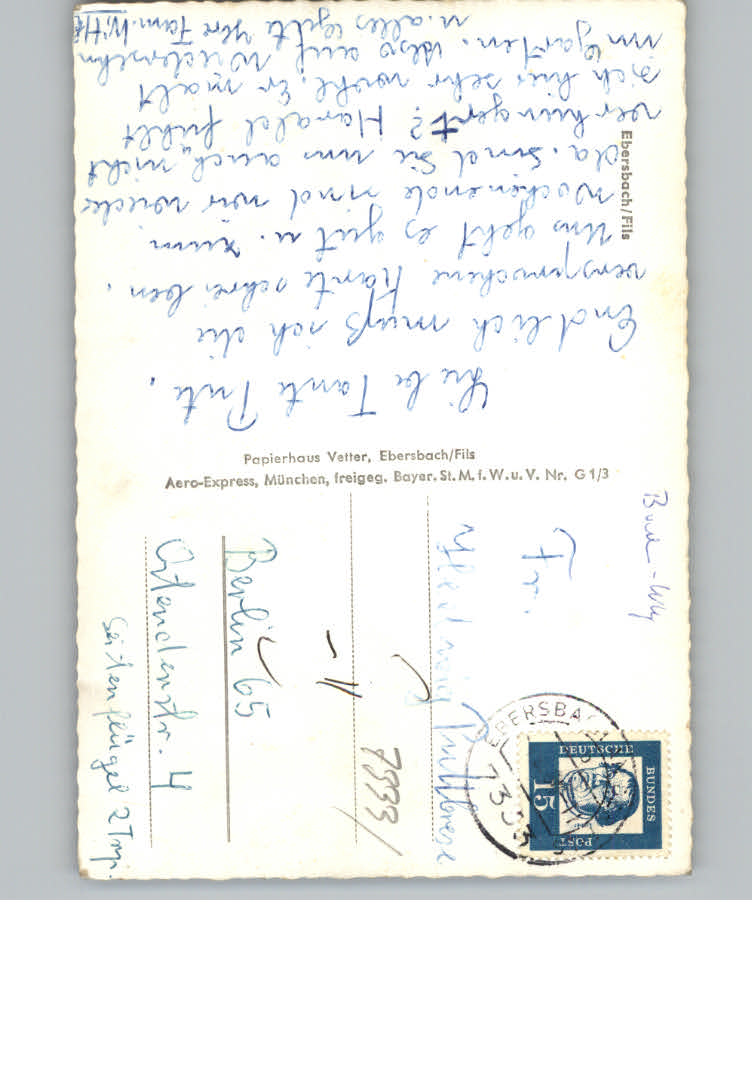 Liebe Tante
Endlich muß ich die
versprochene Karte schreiben.
Uns geht es gut u. zum
Wochenende sind wir wieder
da. Sind Sie uns auch nicht
verhungert? Harald fühlt
sich hier sehr wohl. Er malt
im Garten. Also auf Wiedersehn
u. alles Gute Ihre Fam. Witt
Ebersbach/Fils
Papierhaus Vetter, Ebersbach/Fils
Aero-Express, München, freigeg. Bayer. St. M. f. W. u. V. Nr. G 1/3
Fr.
Hedwig
Berlin 65
Ostenderstr. 4
Seitenflügel 2 Trp.
7333/
EBERSBACH
7333
DEUTSCHE
BUNDES
POST
15